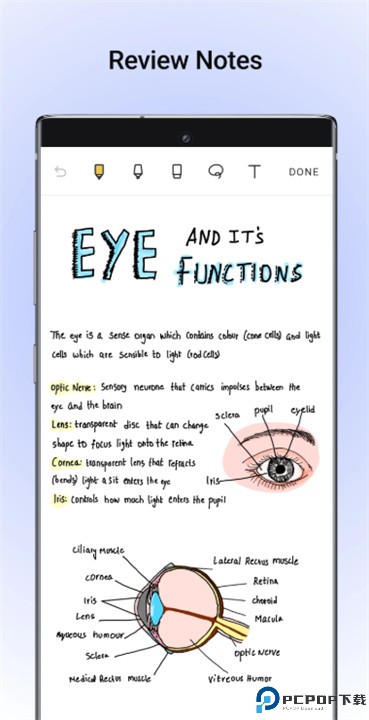 Review Notes
T DONE
EYE AND IT'S
FUNCTIONS
The eye is a sense organ which contains colour (cone cells) and light
cells which are sensible to light (rod cells)
optic Nerve: Sensory neurone that carries impulses between the
eye and the brain
Lens: transparent disc that can change
shape to focus light onto the retina
Cornea: transparent lens that refracts
(bends) light a sit enters the eye
Iris: controls how much light enters the pupil
sclera pupil eyelid
Iris
ciliary muscle
cornea
Iris
Lens
Aqueous humour
Sclera
Medical Rectus muscle
Lateral Rectus muscle
Retina
choroid
Macula
optic Nerve
Vitreous Humor
PCPOP下载